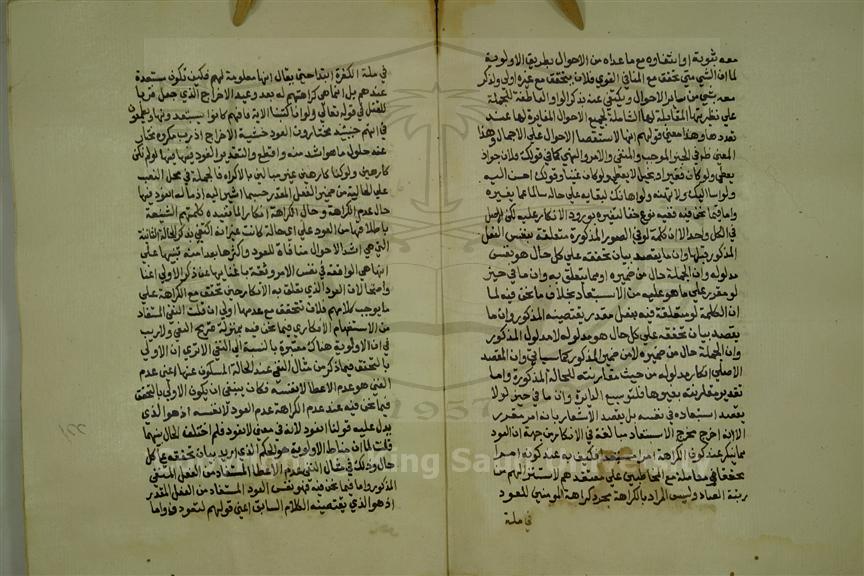 معه ثبوته او انتفاوه مع ماعداه من الاحوال بطريق الاولوية
لما ان الشي متى تحقق مع المنافي القوي فلان يتحقق مع غيره اولى ولذكر
معه شي من ساير الاحوال ويكتفي عنه بذكر الواو العاطفة للجملة
على نظيرتها المقابلة لها الشاملة لجميع الاحوال المغايرة لها عند
تعددها وهذا معنى قولهم انها لاستقصا الاحوال على الاجمال وهذا
المعنى ظاهر في الخبر الموجب والمنفي والامر والنهي كما في قولك فلان جواد
يعطي ولو كان فقيرا وبخيل لا يعطي ولو كان غنيا وقولك احسن اليه
ولو اسا اليك ولا تهنه ولو اهانك لبقايه على حاله سالما عما يغيره
واما فيما نحن فيه ففيه نوع خفا لتغيره بورود الانكار عليه لكن الاصل
في الكل واحد الا ان كلمة لو في الصور المذكورة متعلقة بنفس الفعل
المذكور قبلها وان ما يقصد بيان تحققه على كل حال هو نفس
مدلوله وان الجملة حال من ضميره او مما يتعلق به وان ما في حيز
لو مقرر على ما هو عليه من الاستبعاد بخلاف ما نحن فيه لما
ان الكلمة لو متعلقة فيه بفعل مقدر يقتضيه المذكور وان ما
يقصد بيان تحققه على كل حال هو مدلوله لا مدلول المذكور
وان الجملة حال من ضميره لا من ضمير المذكور كما سياتي وان المقصد
الاصلي انكار مدلوله من حيث مقارنته للحالة المذكورة واما
تقدير مقارنته بغيرها فلتوسيع الدائرة وان ما في حيز لو لا
يقصد استبعاده في نفسه بل يقصد الاشعار بانه امر مقرر
الا انه اخرج مخرج الاستبعاد مبالغة في الانكار من جهة ان العود
مما ينكر عند كون الكراهة امرا مستبعدا فكيف به عند كونه امرا
محققا في معاملة مع المخاطبين على معتقدهم لاستنزالهم من
رتبة العناد وليس المراد بالكراهة مجرد كراهة المومنين للعود
في ملة
في ملة الكفرة ابتداء حتى يقال انها معلومة لهم فكيف تكون مستبعدة
عندهم بل انما هي كراهتهم له بعد وعيد الاخراج الذي جعل قرينا
للقتل في قوله تعالى ولو انا كتبنا الاية فانهم كانوا يستبعدونها ويطمعون
في انهم حينيذ يختارون العود خشية الاخراج اذ رب مكروه يختار
عند حلول ما هو اشد منه وافظع والتقدير انعود فيها فيها لو لم نكن
كارهين ولو كنا كارهين غير مبالين بالاكراه فالجملة في محل النصب
على الحالية من ضمير الفعل المقدر حسبما اشير اليه اذ ماله انعود فيها
حال عدم الكراهة وحال الكراهة انكارا لما تفيده كلمتهم الشنيعة
باطلاقها من العود على اي حالة كانت غير انه اكتفي بذكر الحالة الثانية
التي هي اشد الاحوال منافاة للعود واكثرها بعدا منه تنبيها على
انها هي الواقعة في نفس الامر وثقة باغنايها عن ذكر الاولى اغنا
واضحا لان العود الذي تعلق به الانكار حين تحقق مع الكراهة على
ما يوجب كلامهم فلان تتحقق مع عدمها اولى ان قلت النفي المستفاد
من الاستفهام الانكاري فيما نحن فيه بمنزلة صريح النفي ولا ريب
في ان الاولوية هناك معتبرة بالنسبة الى النفي الا ترى ان الاولى
بالتحقق فيما ذكر من مثال النفي عند الحالة المسكوت عنها اعني عدم
الغنى هو عدم الاعطا لا نفسه فكان ينبغي ان يكون الاولى بالتحقق
فيما نحن فيه عند عدم الكراهة عدم العود لا نفسه اذ هو الذي
يدل عليه قولنا انعود لانه في معنى لا نعود فلم اختلف الحال بينهما
قلت لما ان مناط الاولوية هو الحكم الذي اريد بيان تحققه على كل
حال وذلك في مثال النفي عدم الاعطا المستفاد من الفعل المنفي
المذكور واما فيما نحن فيه فهو نفس العود المستفاد من الفعل المقدر
اذ هو الذي يقتضيه الكلام السابق اعني قولهم لتعودن واما
1957
King Saud University